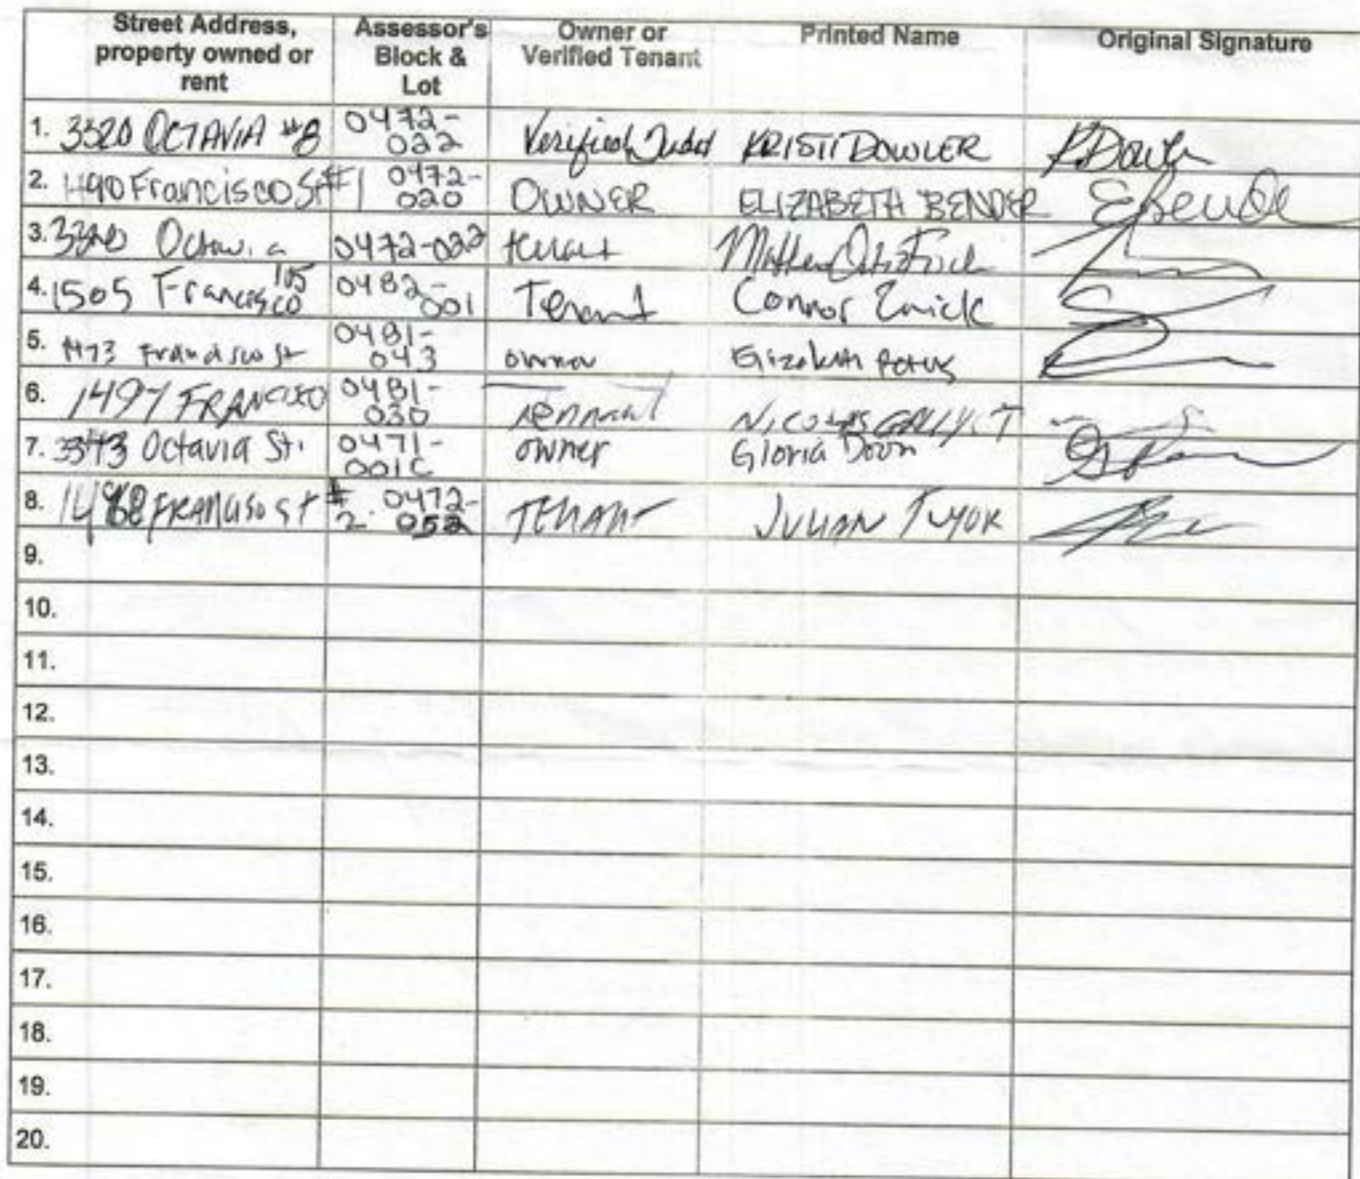 Street Address, property owned or rent
Assessor's Block & Lot
Owner or Verified Tenant
Printed Name
Original Signature
1. 3320 OCTAVIA #8 0472-022 Verified KRISTI DOWLER
2. 1490 Francisco St #1 0472-020 OWNER ELIZABETH BENDER
3. 3320 Octavia 0472-022 tenant
4. 1505 Francisco 105 0482-001 Tenant Connor
5. 1473 Francisco St 0481-043 owner
6. 1497 FRANCISCO 0481-030 Tennant NICOLAS
7. 3343 Octavia St. 0471-001C owner Gloria
8. Francisco St #2 0472-052 TENANT JULIAN
9.
10.
11.
12.
13.
14.
15.
16.
17.
18.
19.
20.